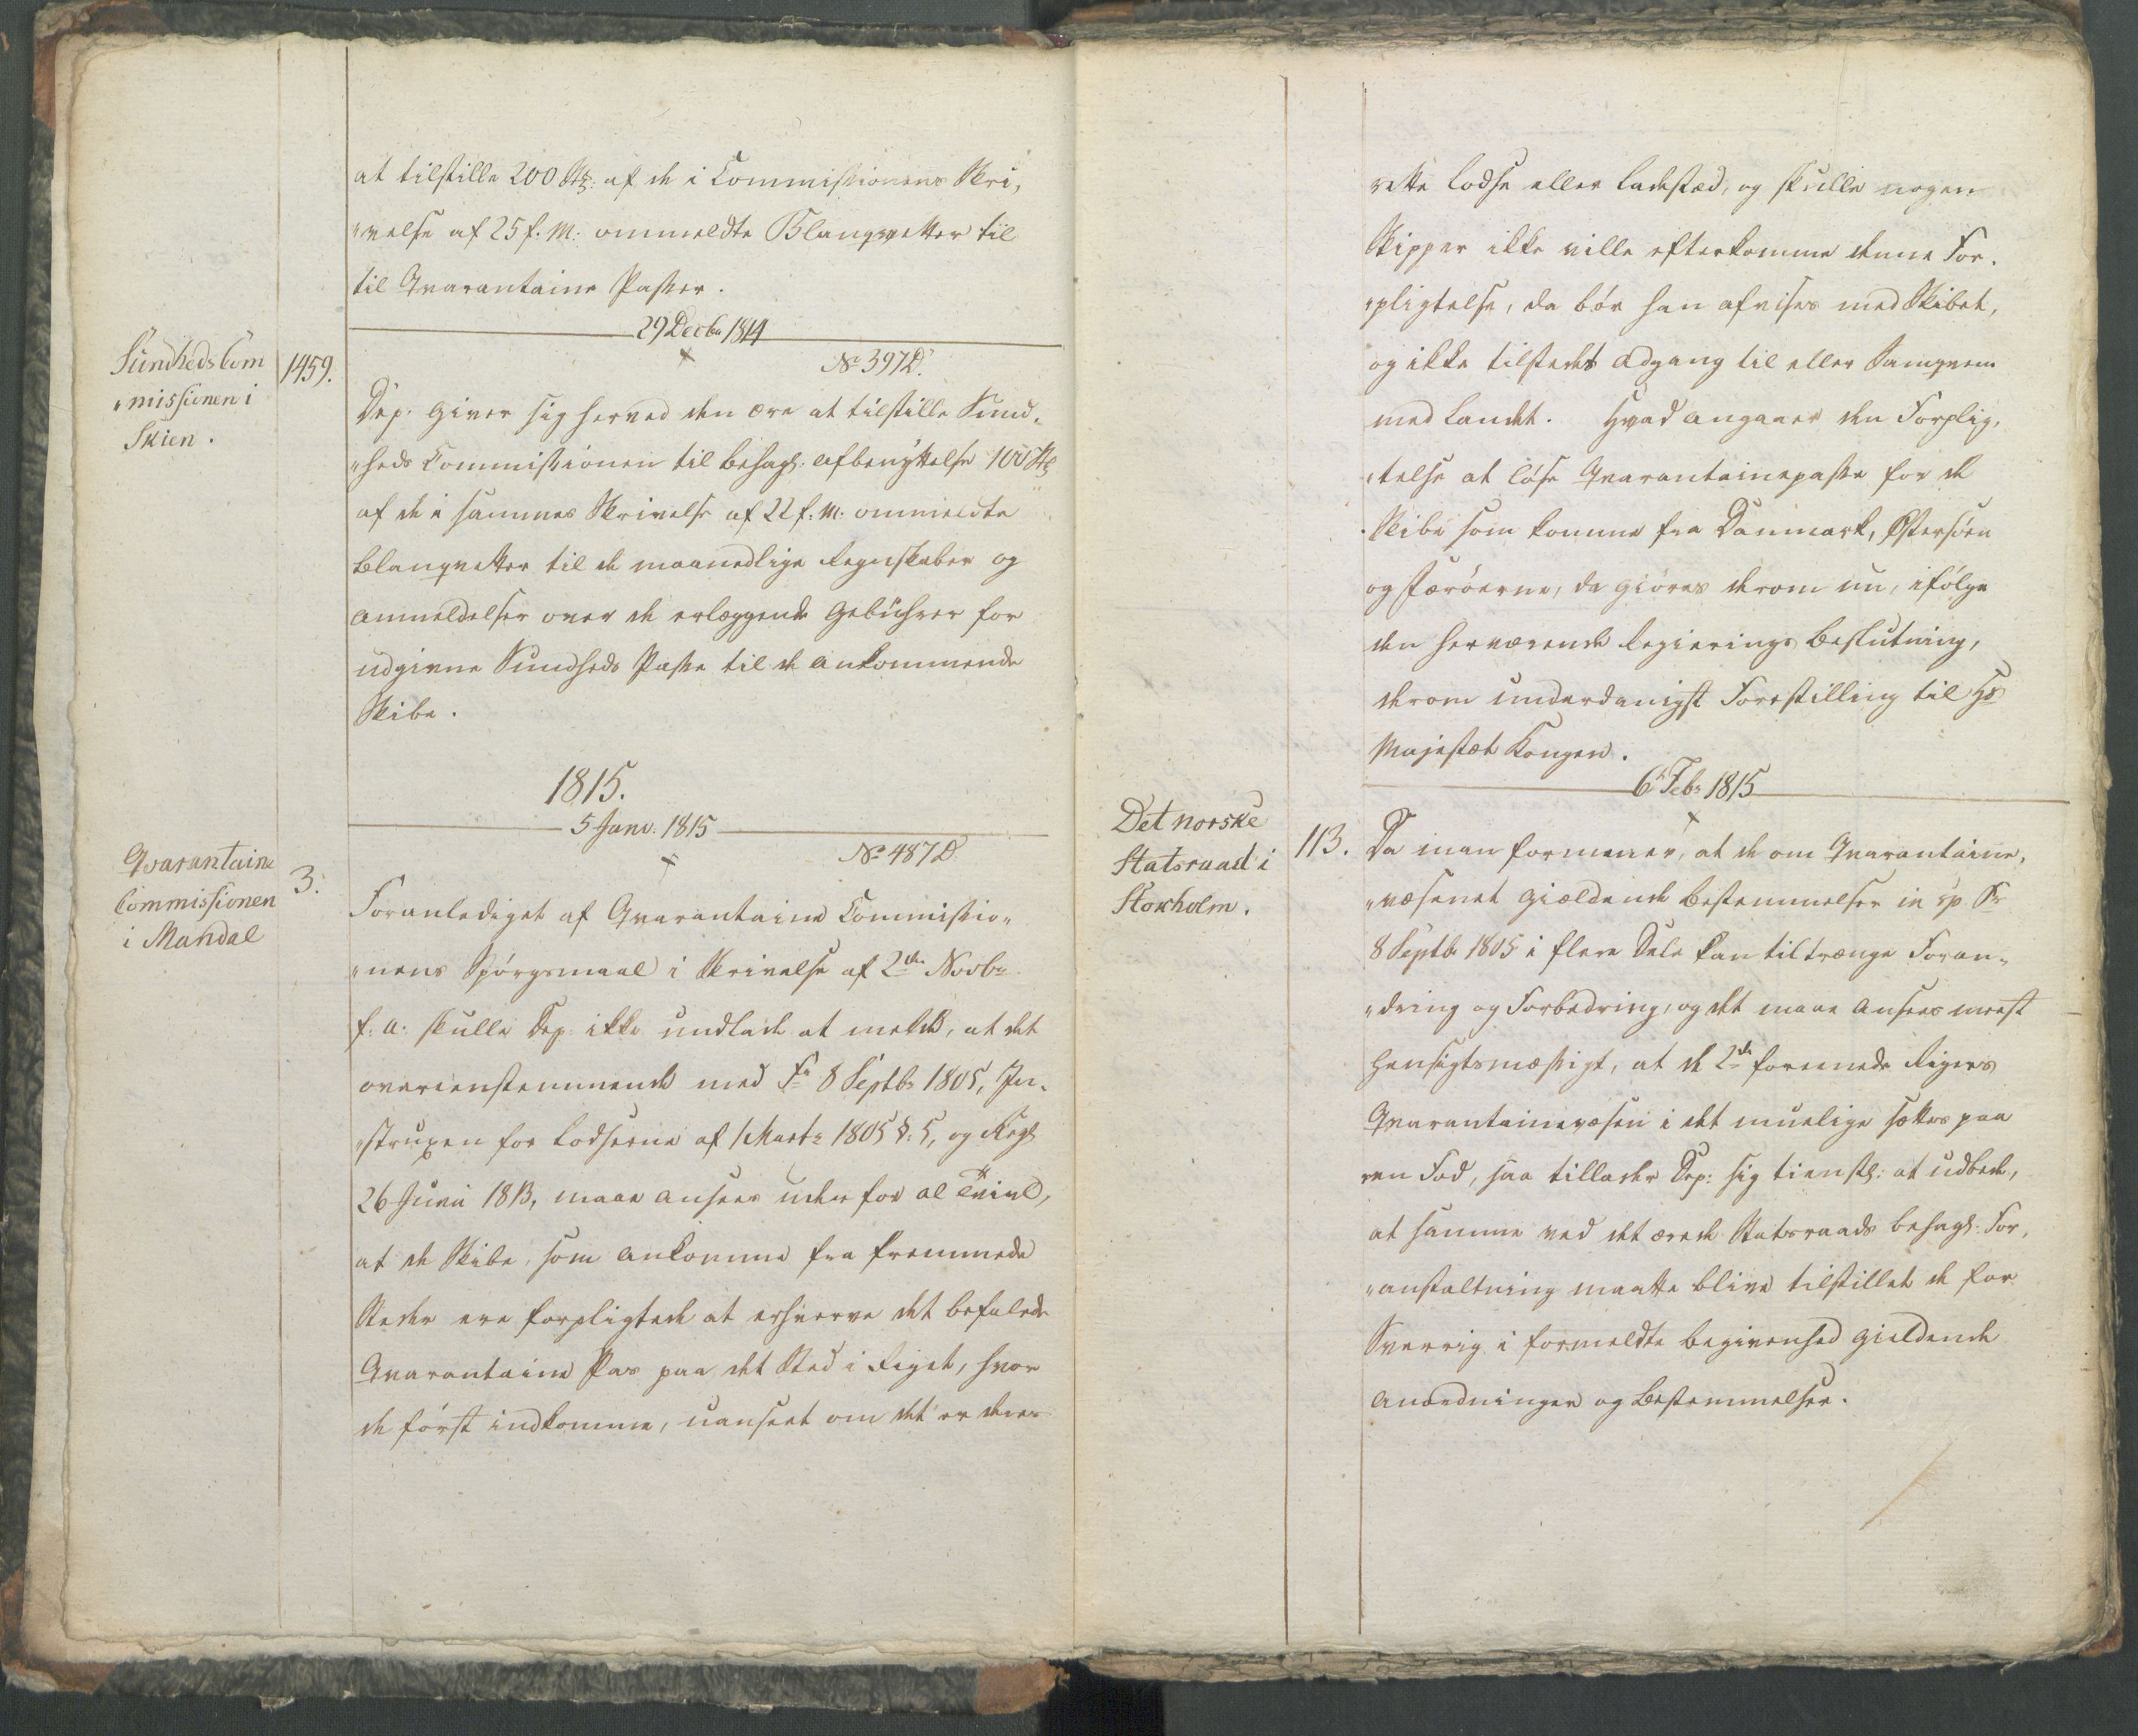 at tilstille 200 Stk: af de i Commissionens Skri,
"velse af 25 f: M: ommeldte Blanqvetter til
til Qvarantaine Passer.
29 Decbr 1814
Sundheds Com
"missionen i
Skien.
1459.
No 397 D.
Dep: giver sig herved den ære at tilstille Sund„
"heds Commissionen til behagl: afbenyttelse 100 Stk
af de i sammes Skrivelse af 22 f: M: ommeldte
Blanqvetter til de maanedlige Regnskaber og
Anmeldelser over de erlæggende Gebührer for
udgivne Sundheds Passe til de ankommende
Skibe.
1815.
5 Janv. 1815
Qvarantaine
Commissionen
i Mandal
3.
No 487 D.
Foranlediget af Qvarantaine Commissio„
"nens Spörgsmaal i Skrivelse af 2den Novbr
f: A: skulle Dep: ikke undlade at melde, at det
overeenstemmende med Fr 8 Septbr 1805, In„
"struxen for Lodserne af 1 Marts 1805 §: 5, og Regl
26 Junii 1813, maae ansees uden for al Tvivl,
at de Skibe, som ankomme fra fremmede
Steder ere forpligtede at erhverve det befalede
Qvarantaine Pas paa det Sted i Riget, hvor
de först indkomme, uanseet om det er deres
rette Lodse eller Ladested, og skulle nogen
Skipper ikke ville efterkomme denne For„
"pligtelse, da bör han afvises med Skibet,
og ikke tilstedes Adgang til eller Samqvem
med Landet. Hvad angaaer den Forplig„
"telse at löse Qvarantainepasse for de
Skibe som komme fra Danmark, Östersöen
og Færöerne, da giöres derom nu, ifölge
den herværende Regierings Beslutning,
derom underdanigst Forestilling til Hs
Majestæt Kongen.
6 Febr 1815
Det norske
Statsraad i
Stokholm.
113.
Da man formener, at de om Qvarantaine„
"væsenet gieldende Bestemmelser in sp. Fr
8 Septbr 1805 i flere Dele kan tiltrænge Foran„
"dring og Forbedring, og det maae ansees meest
hensigtsmæssigt, at de 2de foreenede Rigers
Qvarantainevæsen i det muelige sættes paa
een Fod, saa tillader Dep: sig tienstl: at udbede,
at samme ved det ærede Statsraads behagl: For„
"anstaltning maatte blive tilstillet de for
Sverrig i formeldte Begivenhed gieldende
Anordninger og Bestemmelser.